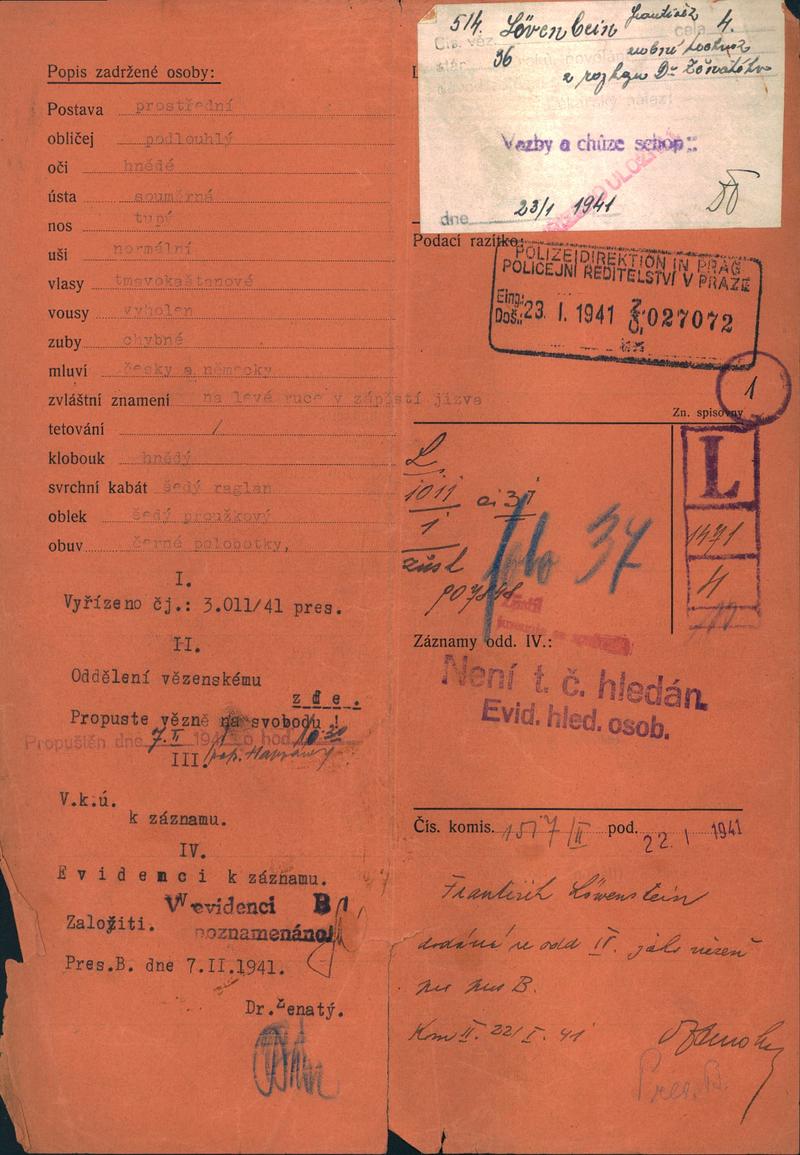 Popis zadržené osoby:
Postava prostřední
obličej podlouhlý
oči hnědé
ústa souměrná
nos tupý
uši normální
vlasy tmavokaštanové
vousy vyholen
zuby chybné
mluví česky a německy
zvláštní znamení na levé ruce v zápěstí jizva
tetování /
klobouk hnědý
svrchní kabát šedý raglan
oblek šedý proužkový
obuv černé polobotky,
I.
Vyřízeno čj.: 3.011/41 pres.
II.
Oddělení vězenskému
zde.
Propuste vězně na svobodu !
Propuštěn dne 7.II 1941 o hod. 10.30
III.
V.k.ú.
k záznamu.
IV.
Evidenci k záznamu.
V evidenci B
poznamenáno
Založiti.
Pres.B. dne 7.II.1941.
Dr.Ženatý.
514. Löwenbein František cela 4.
Čís. věz.
stár 36
z rozkazu Dr
Vazby a chůze schop
dne 23/1 1941
Podací razítko:
POLIZEIDIREKTION IN PRAG
POLICEJNÍ ŘEDITELSTVÍ V PRAZE
Eing.:
Doš.: 23. I. 1941 027072
1
Zn. spisovny
L
1011
1
907848
foto 37
L
1471
4
Záznamy odd. IV.:
Není t. č. hledán.
Evid. hled. osob.
Čís. komis. 1517/II pod. 22. I 1941
František Löwenstein
dodán ve odd IV. jako vězeň
pres B.
Kom II. 22/I. 41
Pres. B.